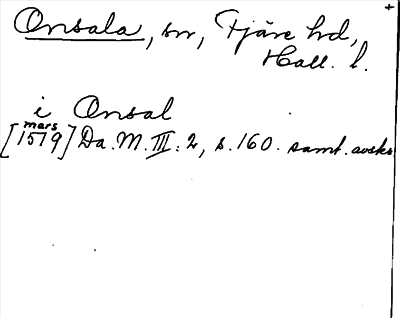 Onsala, sn, Fjäre hd,
Hall. l.
i Onsal
mars
[1579] Da. M. III: 2, s. 160. samt. avskr